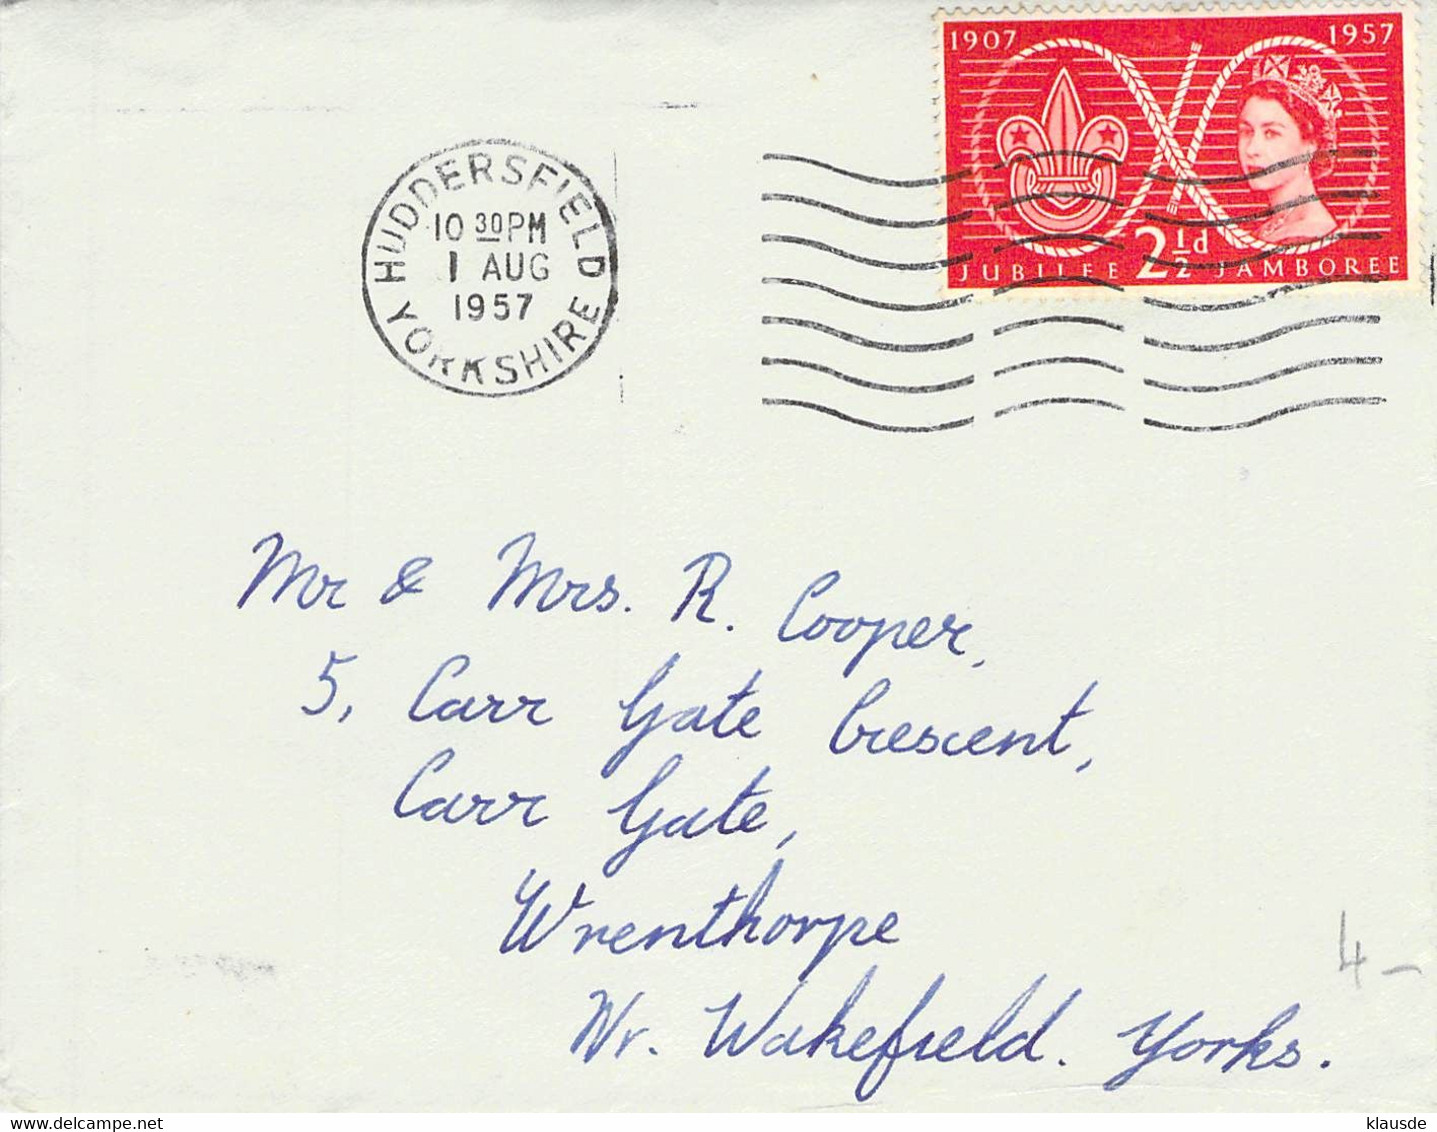 1907 1957
JUBILEE 2½d JAMBOREE
HUDDERSFIELD
10 30 PM
1 AUG
1957
YORKSHIRE
Mr & Mrs. R. Cooper,
5, Carr Gate Crescent,
Carr Gate,
Wrenthorpe
Nr. Wakefield. Yorks.
4-
klausde